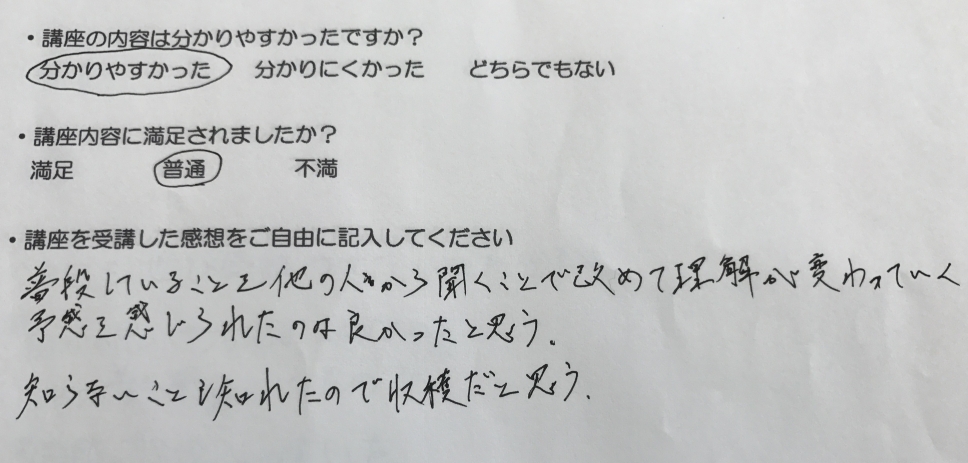 ・講座の内容は分かりやすかったですか？
分かりやすかった 分かりにくかった どちらでもない
・講座内容に満足されましたか？
満足 普通 不満
・講座を受講した感想をご自由に記入してください
普段していることを他の人から聞くことで改めて理解が変わっていく
予感を感じられたのは良かったと思う。
知らないことも知れたので収穫だと思う.